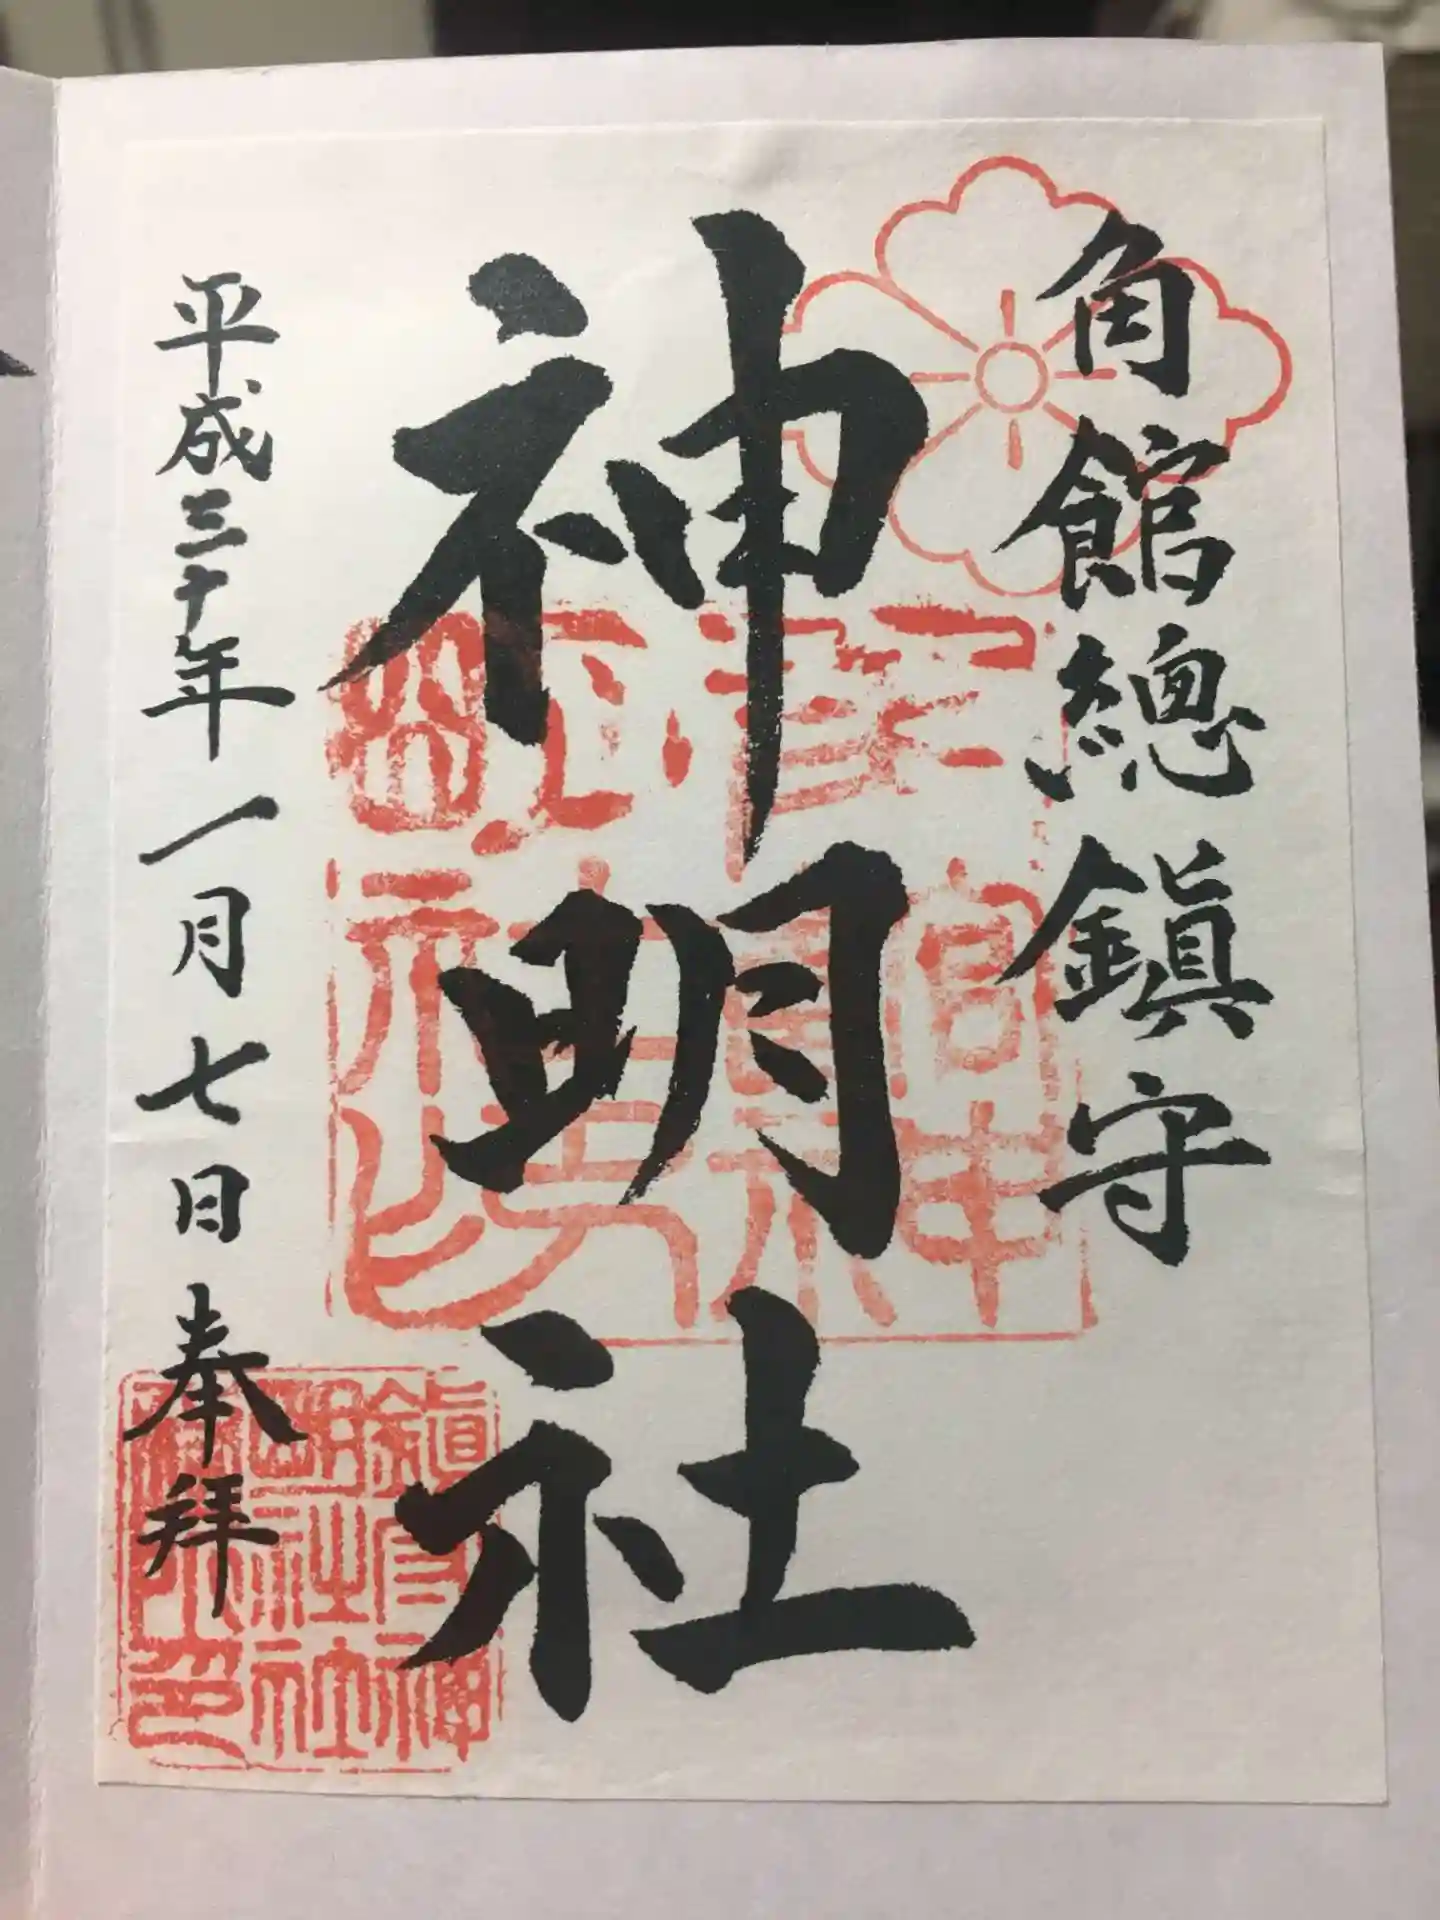 角館總鎭守
神明社
平成三十年一月七日奉拜